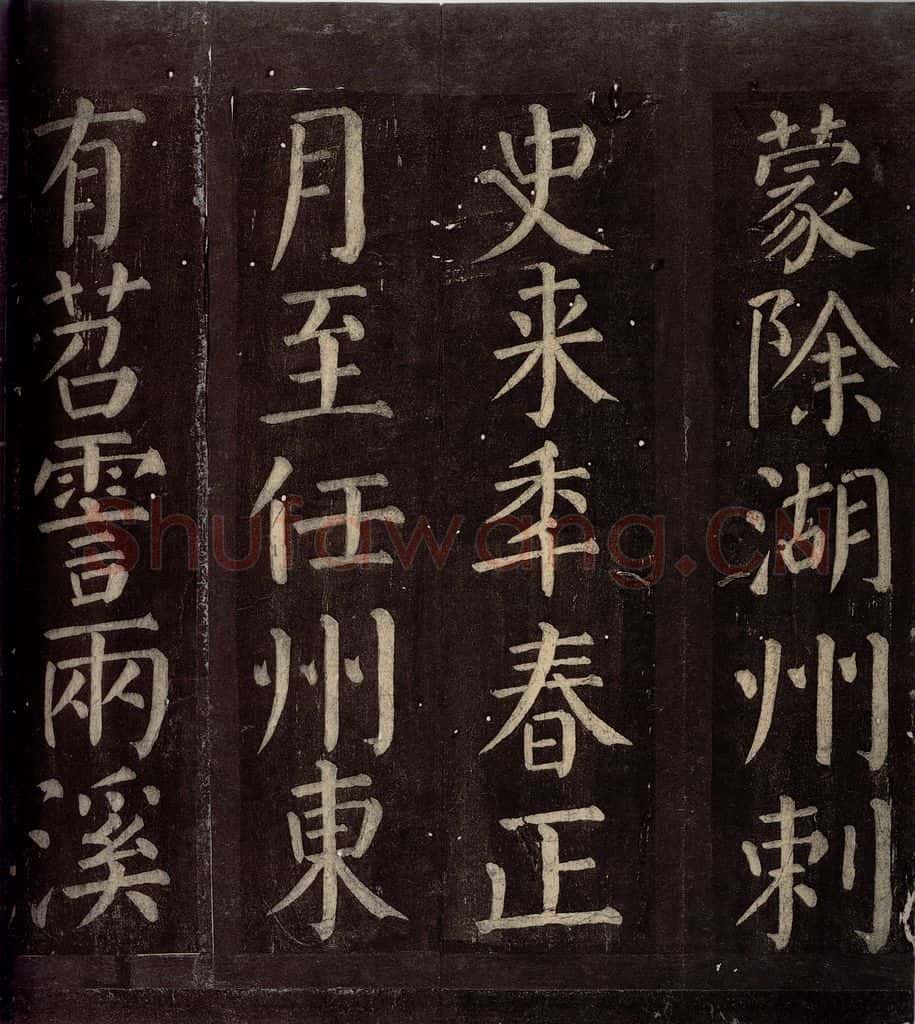 蒙除湖州刺
史来年春正
月至任州東
有苕霅兩溪
Shufawang.CN